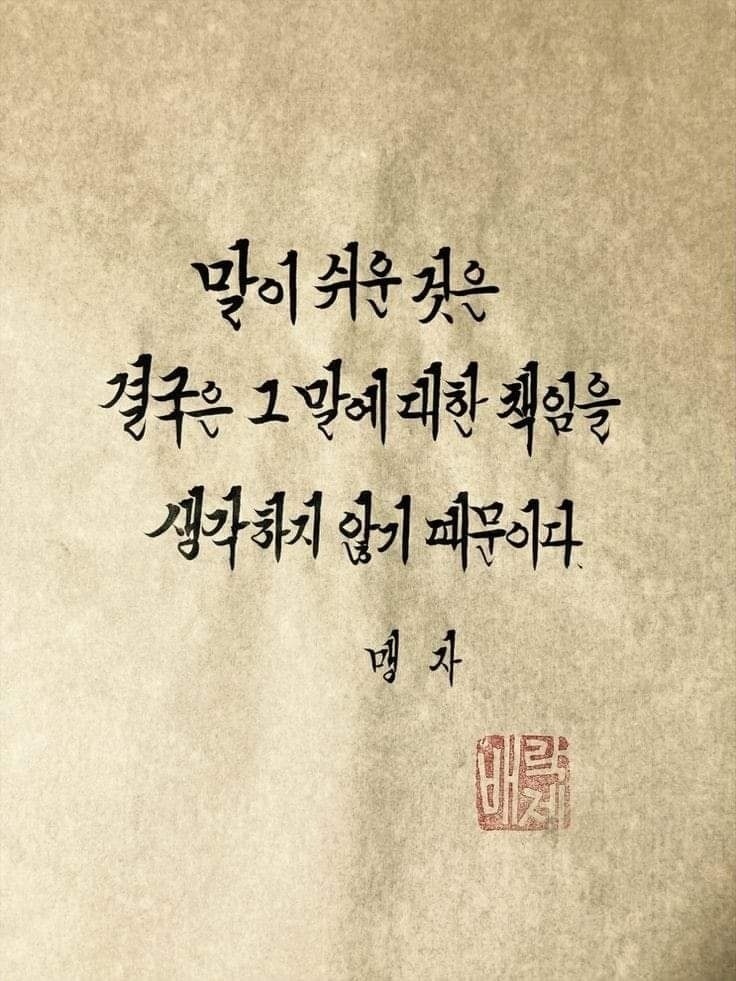 말이 쉬운 것은
결국은 그 말에 대한 책임을
생각하지 않기 때문이다.
맹 자
배락제